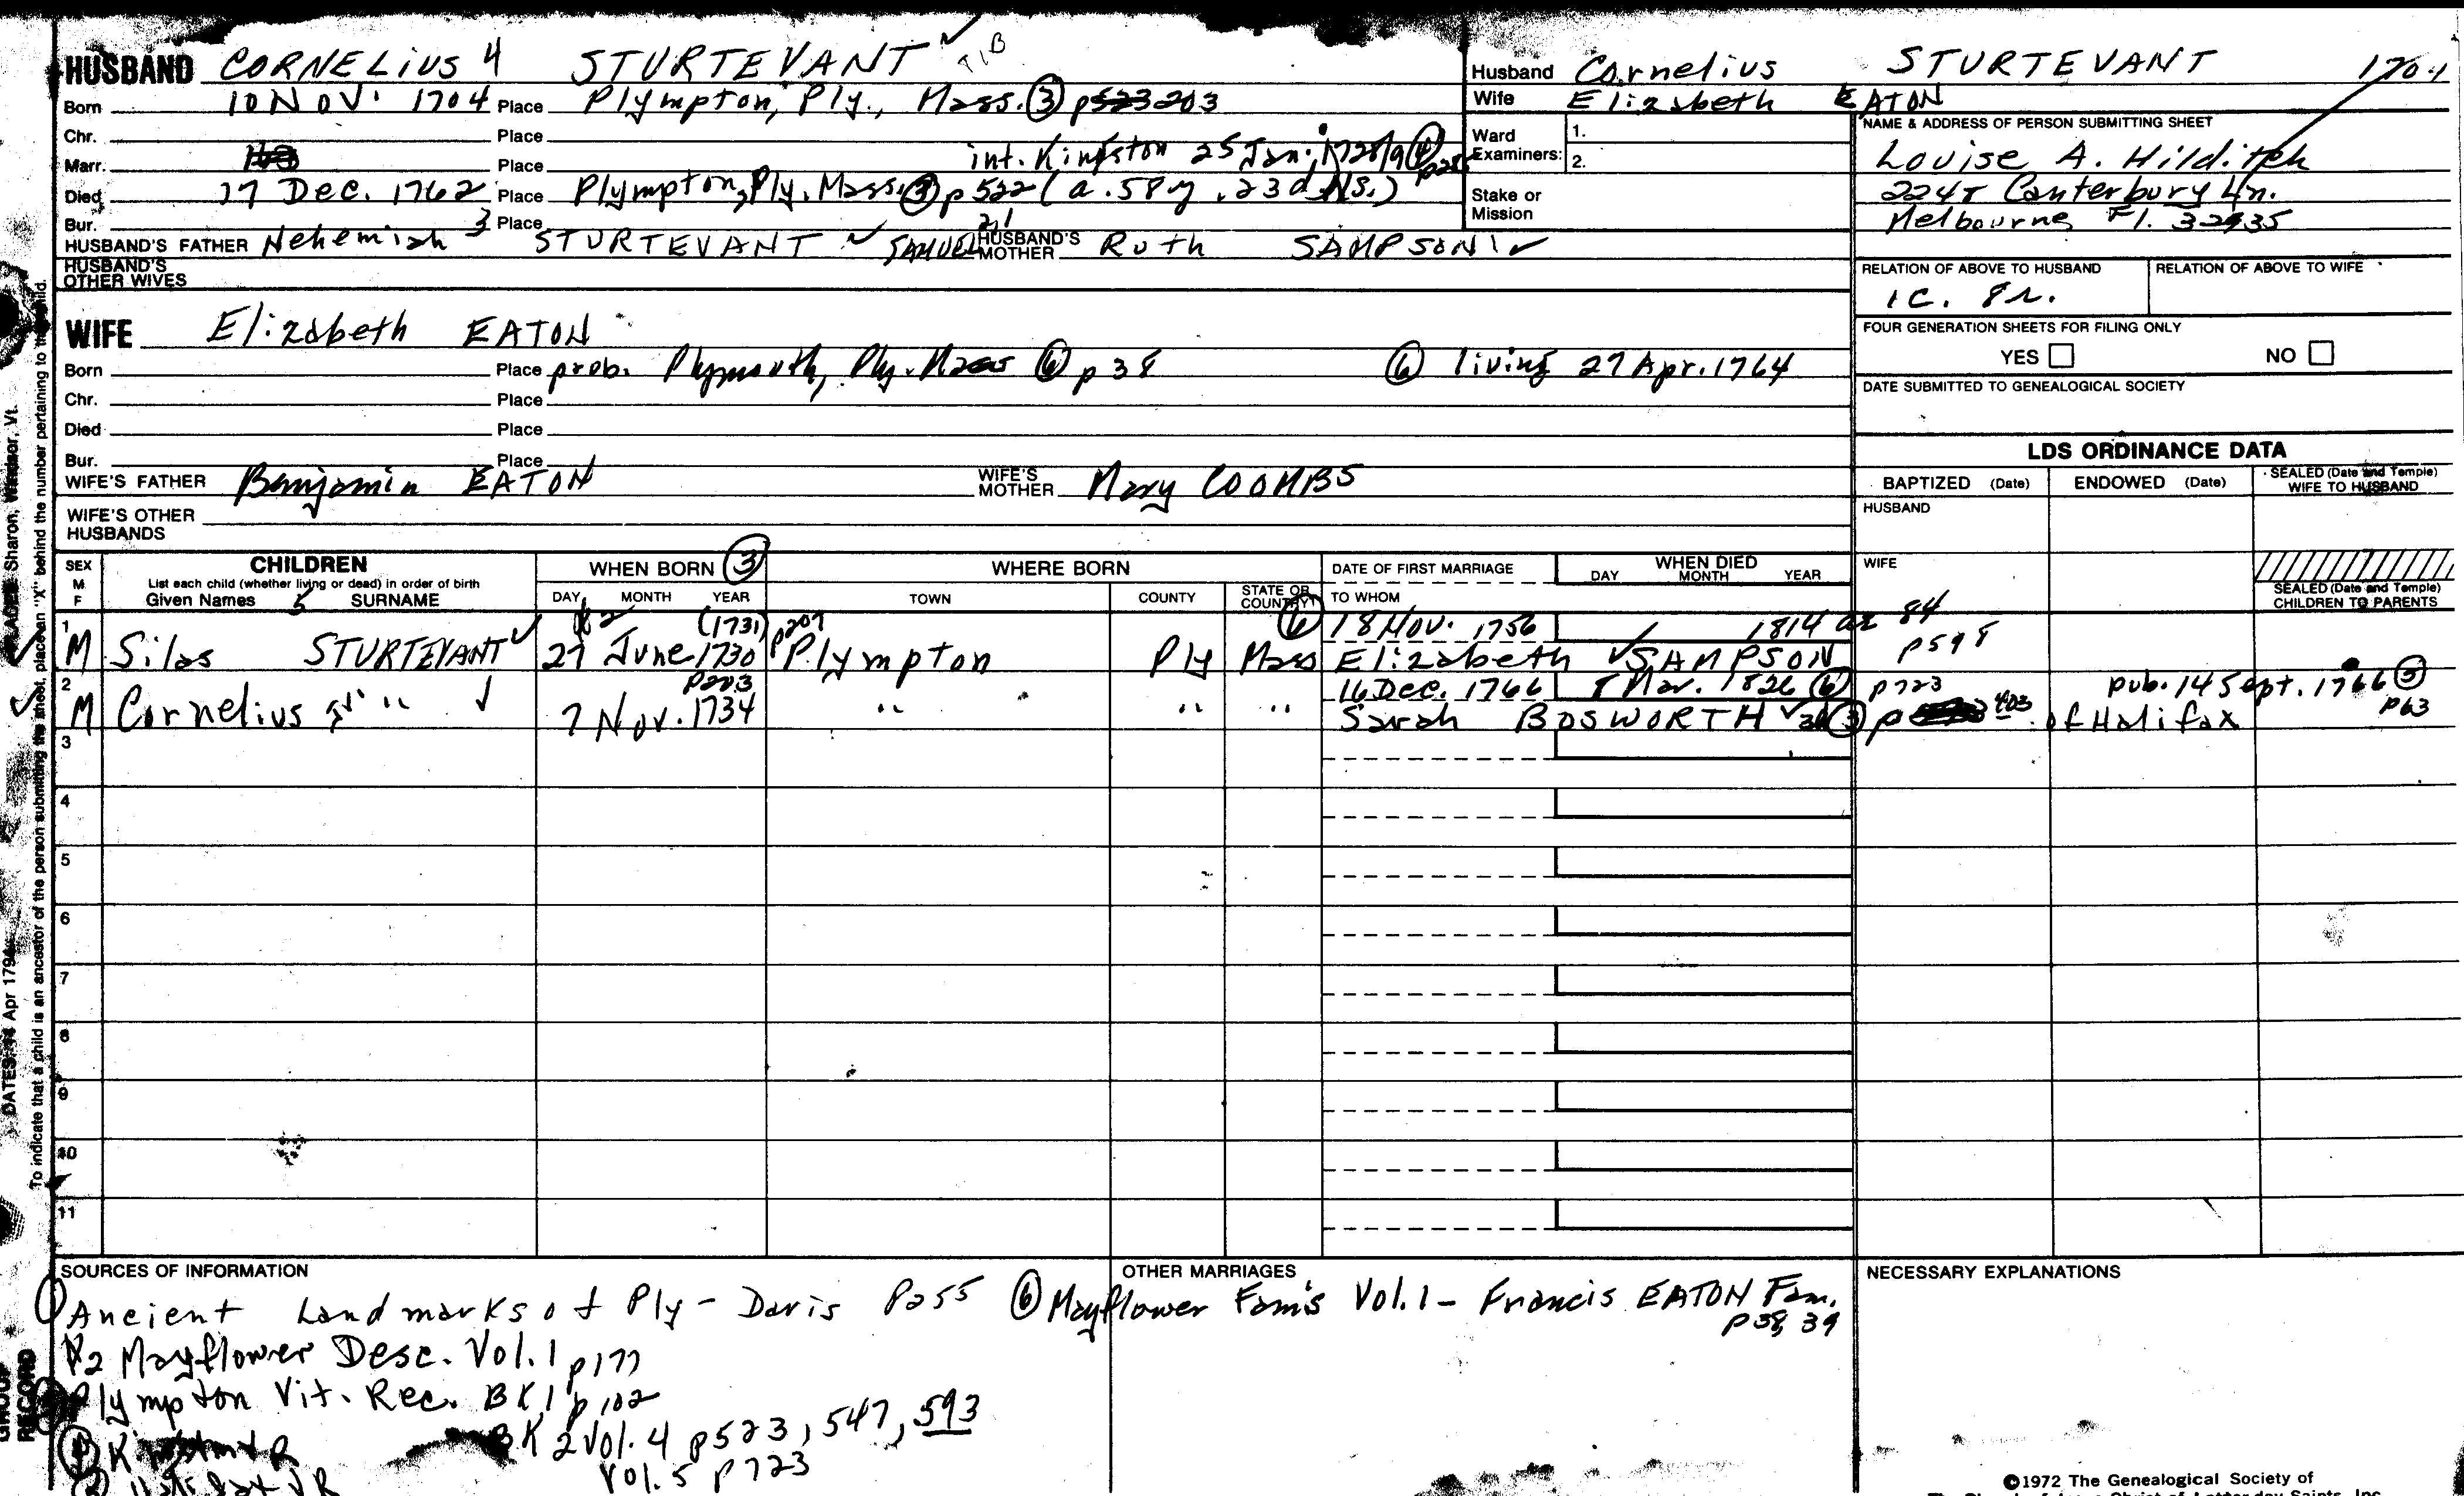 HUSBAND CORNELIUS 4 STURTEVANT ✓ TIB
Born 10 NOV. 1704 Place Plympton, Ply., Mass. ③ p 203
Chr. Place
Marr. Place int. Kingston 25 Jan. 1728/9 ④
Died 17 Dec. 1762 Place Plympton, Ply. Mass. ③ p 522 (a. 58 y. 23 d. N.S.)
Bur. Place
HUSBAND'S FATHER Nehemiah 3 STURTEVANT ✓ SAMUEL 2,1 HUSBAND'S MOTHER Ruth SAMPSON ✓
HUSBAND'S OTHER WIVES
WIFE Elizabeth EATON
Born Place prob. Plymouth, Ply. Mass ⑥ p 38 ⑥ living 27 Apr. 1764
Chr. Place
Died Place
Bur. Place
WIFE'S FATHER Benjamin EATON WIFE'S MOTHER Mary COOMBS
WIFE'S OTHER HUSBANDS
Husband Cornelius STURTEVANT 1704
Wife Elizabeth EATON
Ward Examiners: 1.
2.
Stake or Mission
NAME & ADDRESS OF PERSON SUBMITTING SHEET
Louise A. Hilditch
2248 Canterbury Ln.
Melbourne, Fl. 32935
RELATION OF ABOVE TO HUSBAND RELATION OF ABOVE TO WIFE
1C. 8r.
FOUR GENERATION SHEETS FOR FILING ONLY
YES NO
DATE SUBMITTED TO GENEALOGICAL SOCIETY
LDS ORDINANCE DATA
BAPTIZED (Date) ENDOWED (Date) SEALED (Date and Temple) WIFE TO HUSBAND
HUSBAND
WIFE
SEALED (Date and Temple) CHILDREN TO PARENTS
SEX M F CHILDREN WHEN BORN ③ WHERE BORN DATE OF FIRST MARRIAGE WHEN DIED
List each child (whether living or dead) in order of birth
Given Names 5 SURNAME DAY MONTH YEAR TOWN COUNTY STATE OR COUNTRY TO WHOM DAY MONTH YEAR
1 (1731) p207 ⑥ 18 Nov. 1756 1814 ae 84
M Silas STURTEVANT ✓ 27 June 1730 Plympton Ply Mass Elizabeth ✓ SAMPSON p598
2 p203 16 Dec. 1766 8 Mar. 1826 ⑥ p723 pub. 14 Sept. 1766 ⑤
M Cornelius " ✓ 7 Nov. 1734 " " " Sarah BOSWORTH ✓ ③ p 403 of Halifax p63
3
4
5
6
7
8
9
10
11
SOURCES OF INFORMATION
① Ancient Landmarks of Ply - Davis P255
#2 Mayflower Desc. Vol. 1 p177
Plympton Vit. Rec. BK 1 p 102
BK 2 Vol. 4 p523, 547, 593
Vol. 5 p723
④ Kingston VR
Halifax VR
OTHER MARRIAGES
⑥ Mayflower Fam's Vol. 1 - Francis EATON Fam.
p 38, 39
NECESSARY EXPLANATIONS
©1972 The Genealogical Society of
The Church of Jesus Christ of Latter-day Saints, Inc.
Sharon, Windsor, Vt.
To indicate that a child is an ancestor of the person submitting the sheet, place an "X" behind the number pertaining to that child.
DATES: 14 Apr 1794
GROUP RECORD